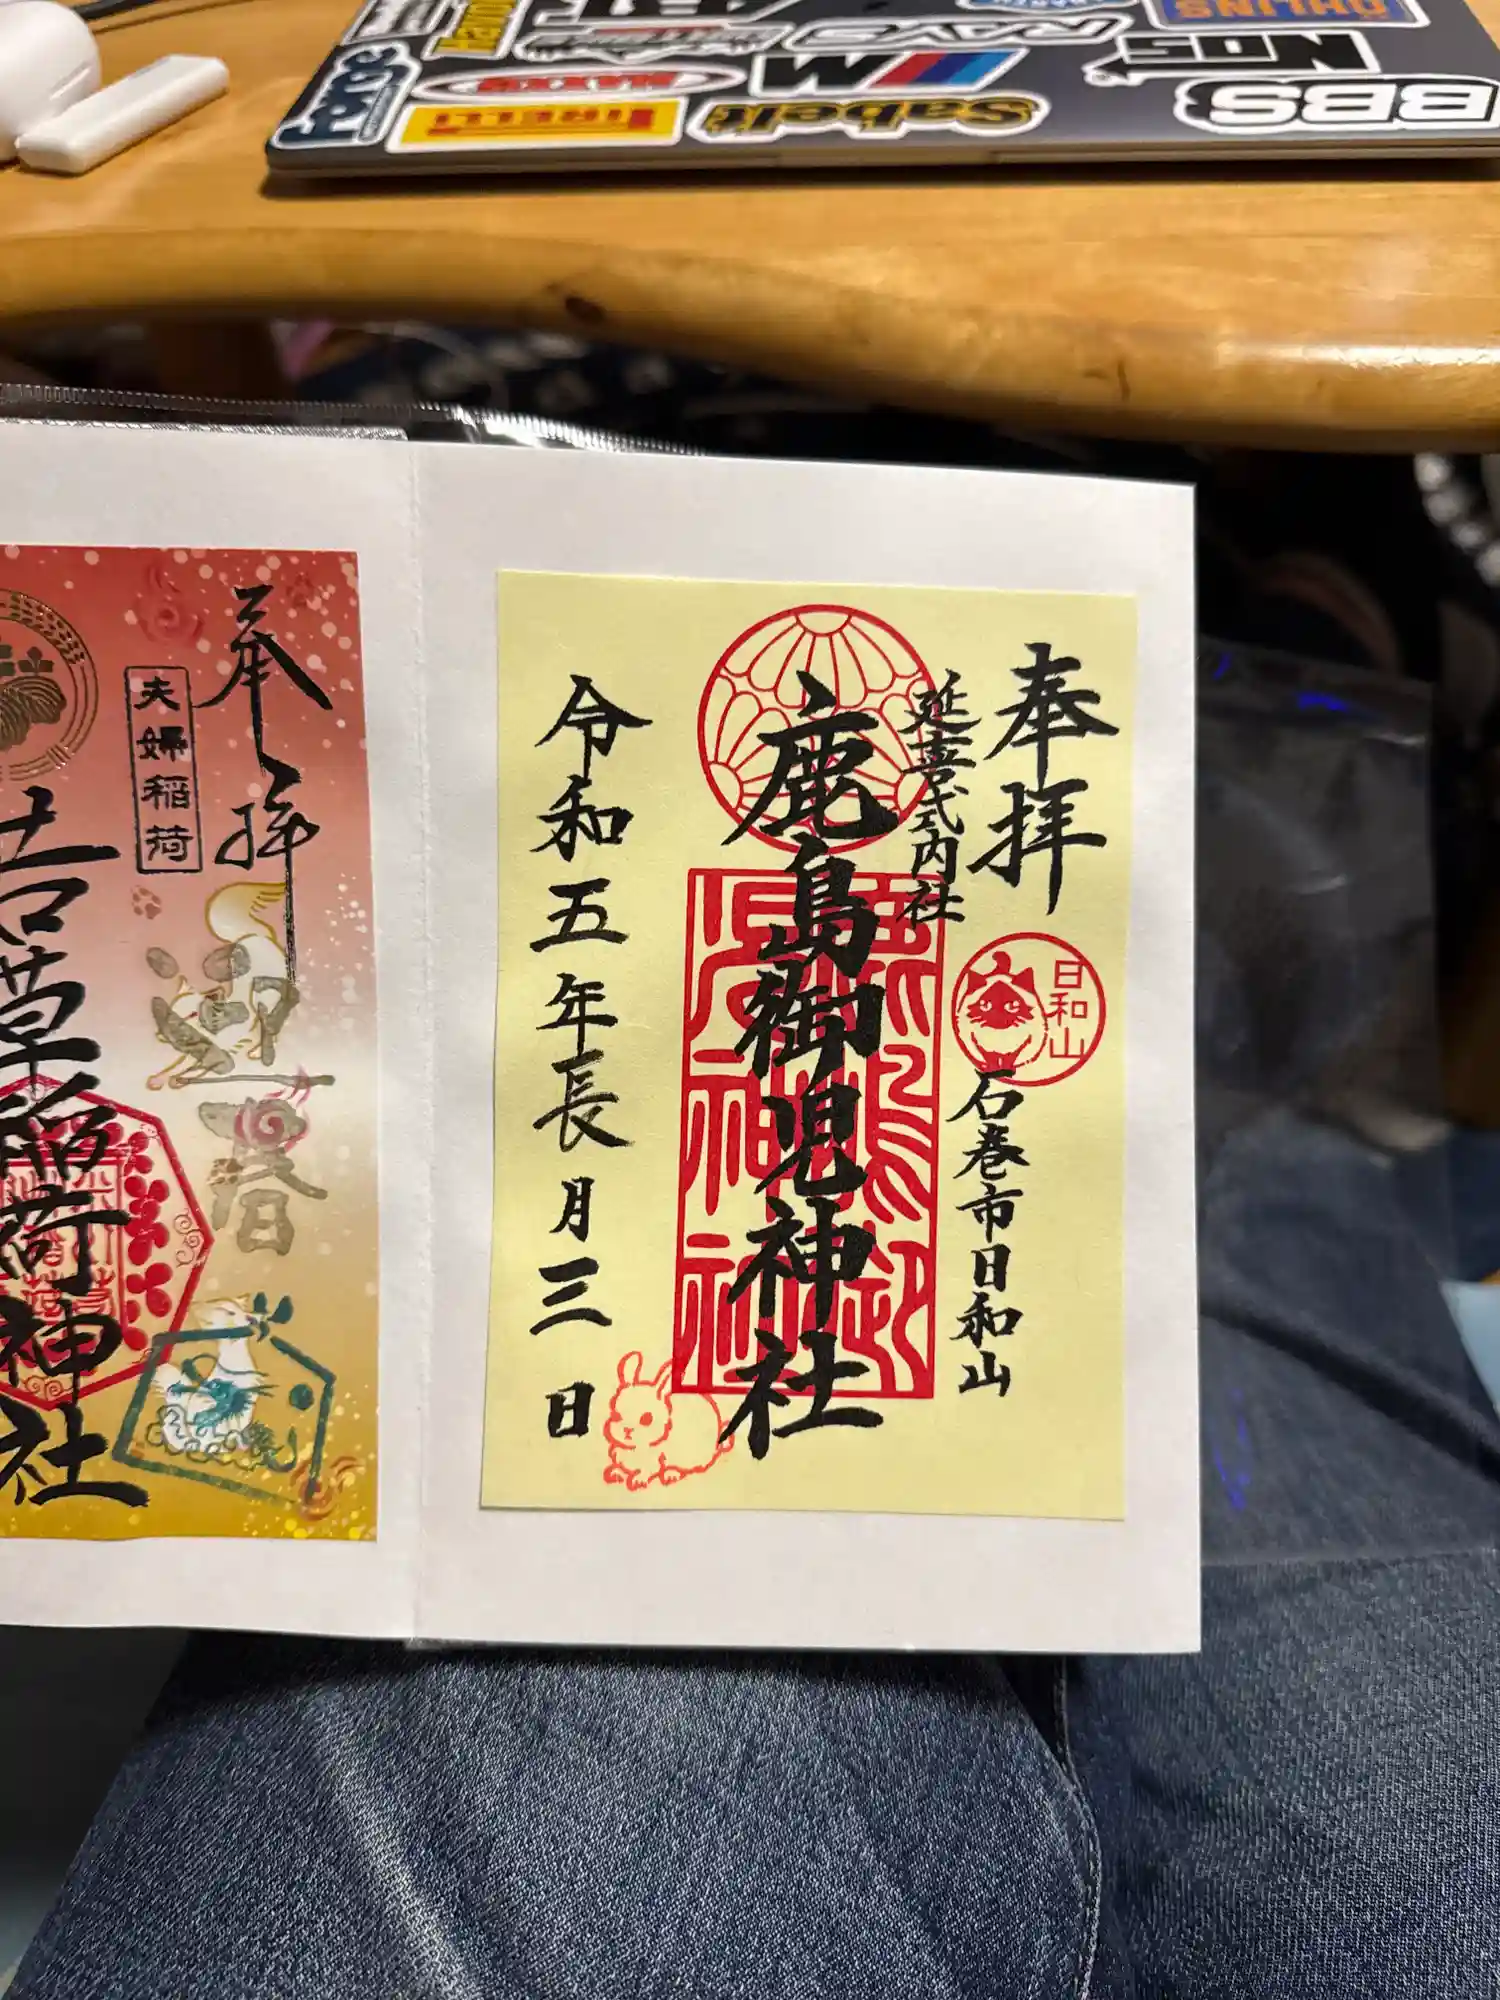 奉拝
延喜式内社
日和山
石巻市日和山
鹿島御児神社
令和五年長月三日
奉拝
夫婦稲荷
迎春
若草稲荷神社
ÖHLINS
NOS
RAYS
BBS
Sabelt
PIRELLI
MAXXIS
M